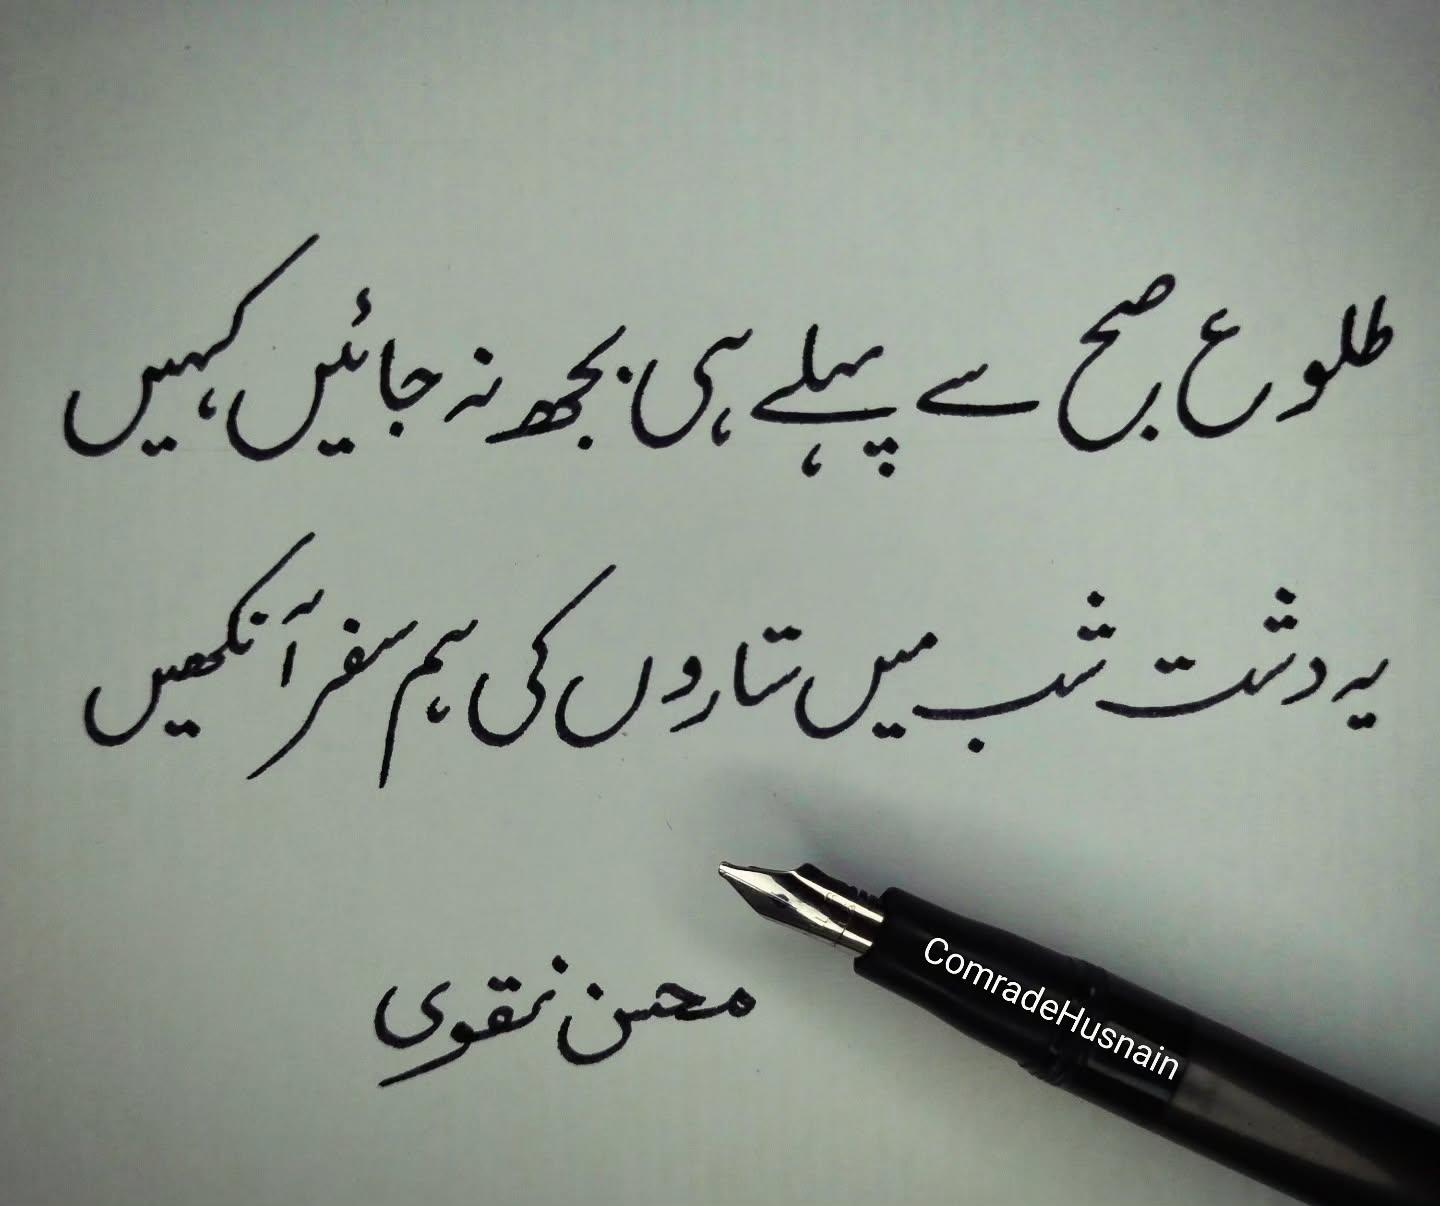 طلوع صبح سے پہلے ہی بجھ نہ جائیں کہیں
یہ دشت شب میں ستاروں کی ہم سفر آنکھیں
محسن نقوی
ComradeHusnain